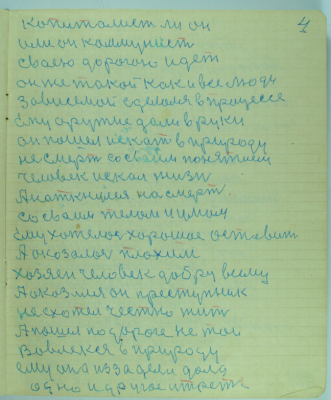 4
Копиталист ли он
или он каммунист
сваею дорогою идет
он не такой как и все люди
Зависемой сделался в процессе
Ему аружие дали в руки
он пошел искат в природу
не смерт со сваим понятием
человек искал жизн
А наткнулся на смерт
со сваим телом и умом
Ему хотелос харошое оставит
А оказалос плохим
хозяен человек добру всему
А оказался он преступник
не схотел честно жит
А пошел по дороге не той
Вовлекся в природу
ему она из задели дала
одно и другое и трете